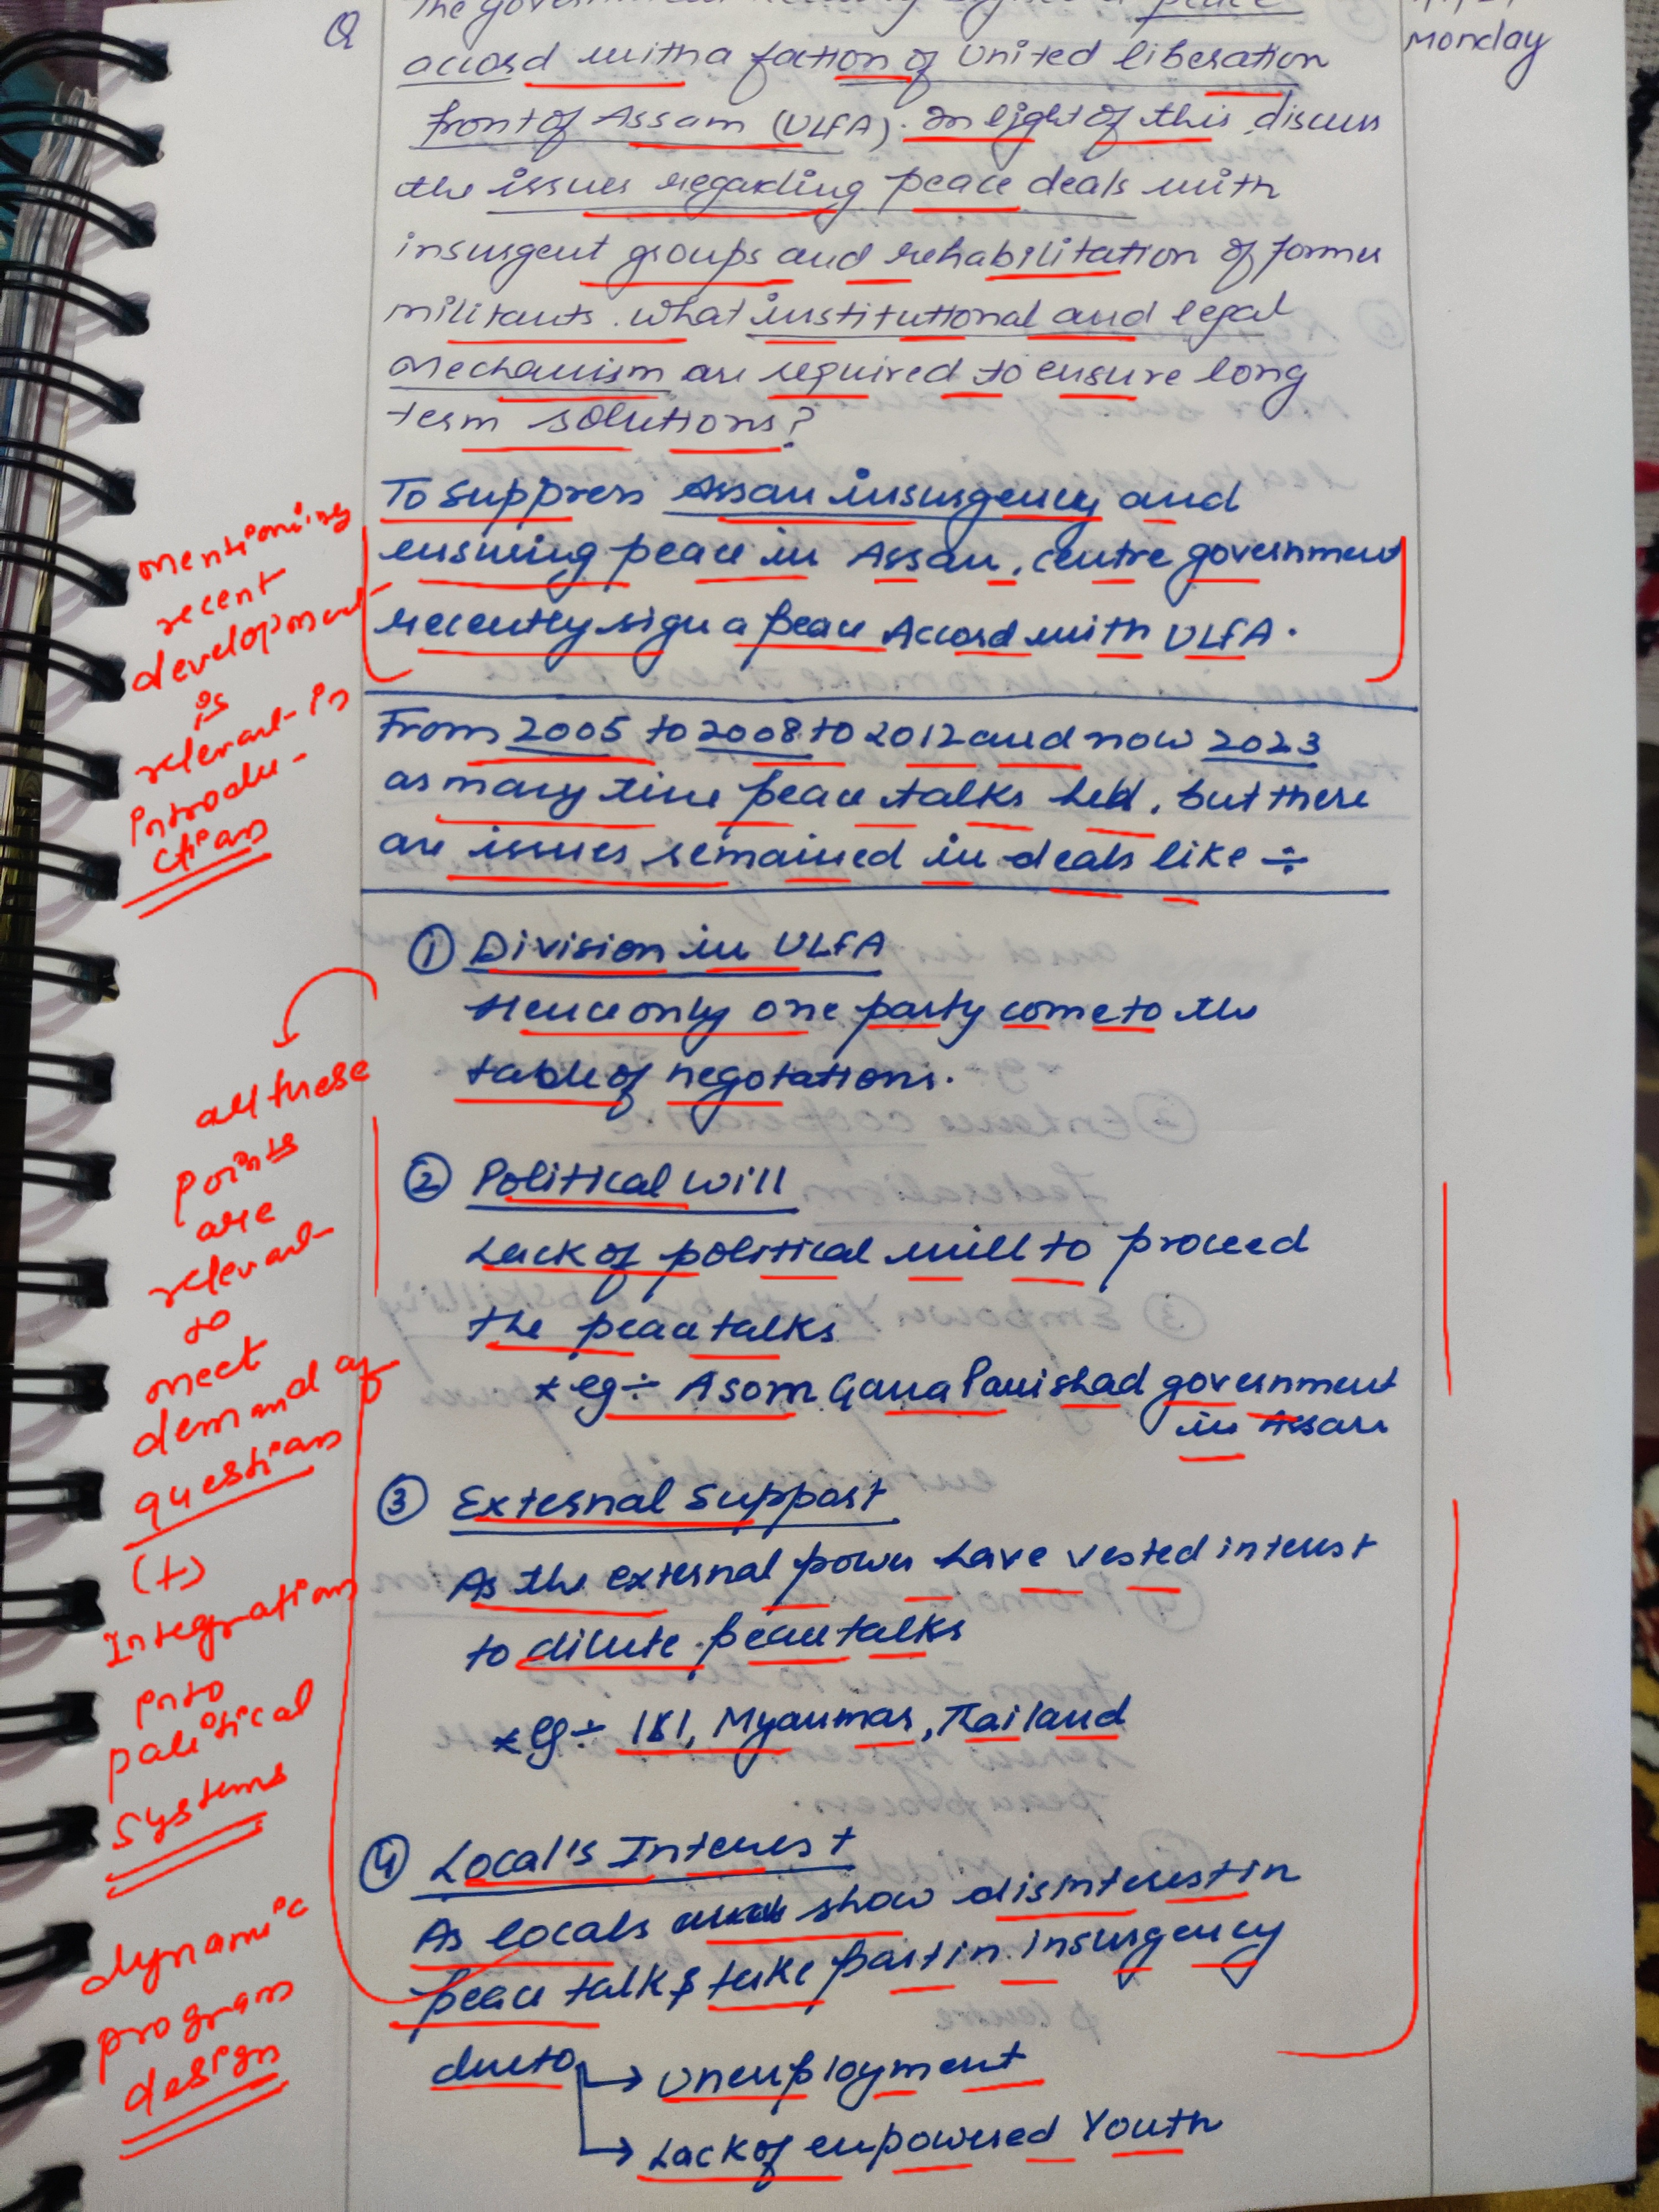 Q
The government
peace
accord with a faction of United liberation
front of Assam (ULFA). In light of this, discuss
the issues regarding peace deals with
insurgent groups and rehabilitation of former
militants. What institutional and legal
mechanism are required to ensure long
term solutions?
Monday
To suppress Assam insurgency and
ensuring peace in Assam, centre government
recently sign a peace Accord with ULFA.
mentioning
recent
development
is
relevant in
introdu-
ction
From 2005 to 2008 to 2012 and now 2023
as many time peace talks held, but there
are issues remained in deals like ÷
① Division in ULFA
Hence only one party come to the
table of negotations.
② Political will
Lack of political will to proceed
the peace talks
* eg ÷ Asom Gana Parishad government
in Assam
③ External Support
As the external power have vested interest
to dilute peace talks
* eg ÷ ISI, Myanmar, Thailand
④ Local's Interest
As locals show disinterest in
peace talk & take part in insurgency
due to → Unemployment
→ Lack of empowered Youth
all these
points
are
relevant
to
meet
demand of
question
(+)
Integration
into
political
systems
dynamic
program
design